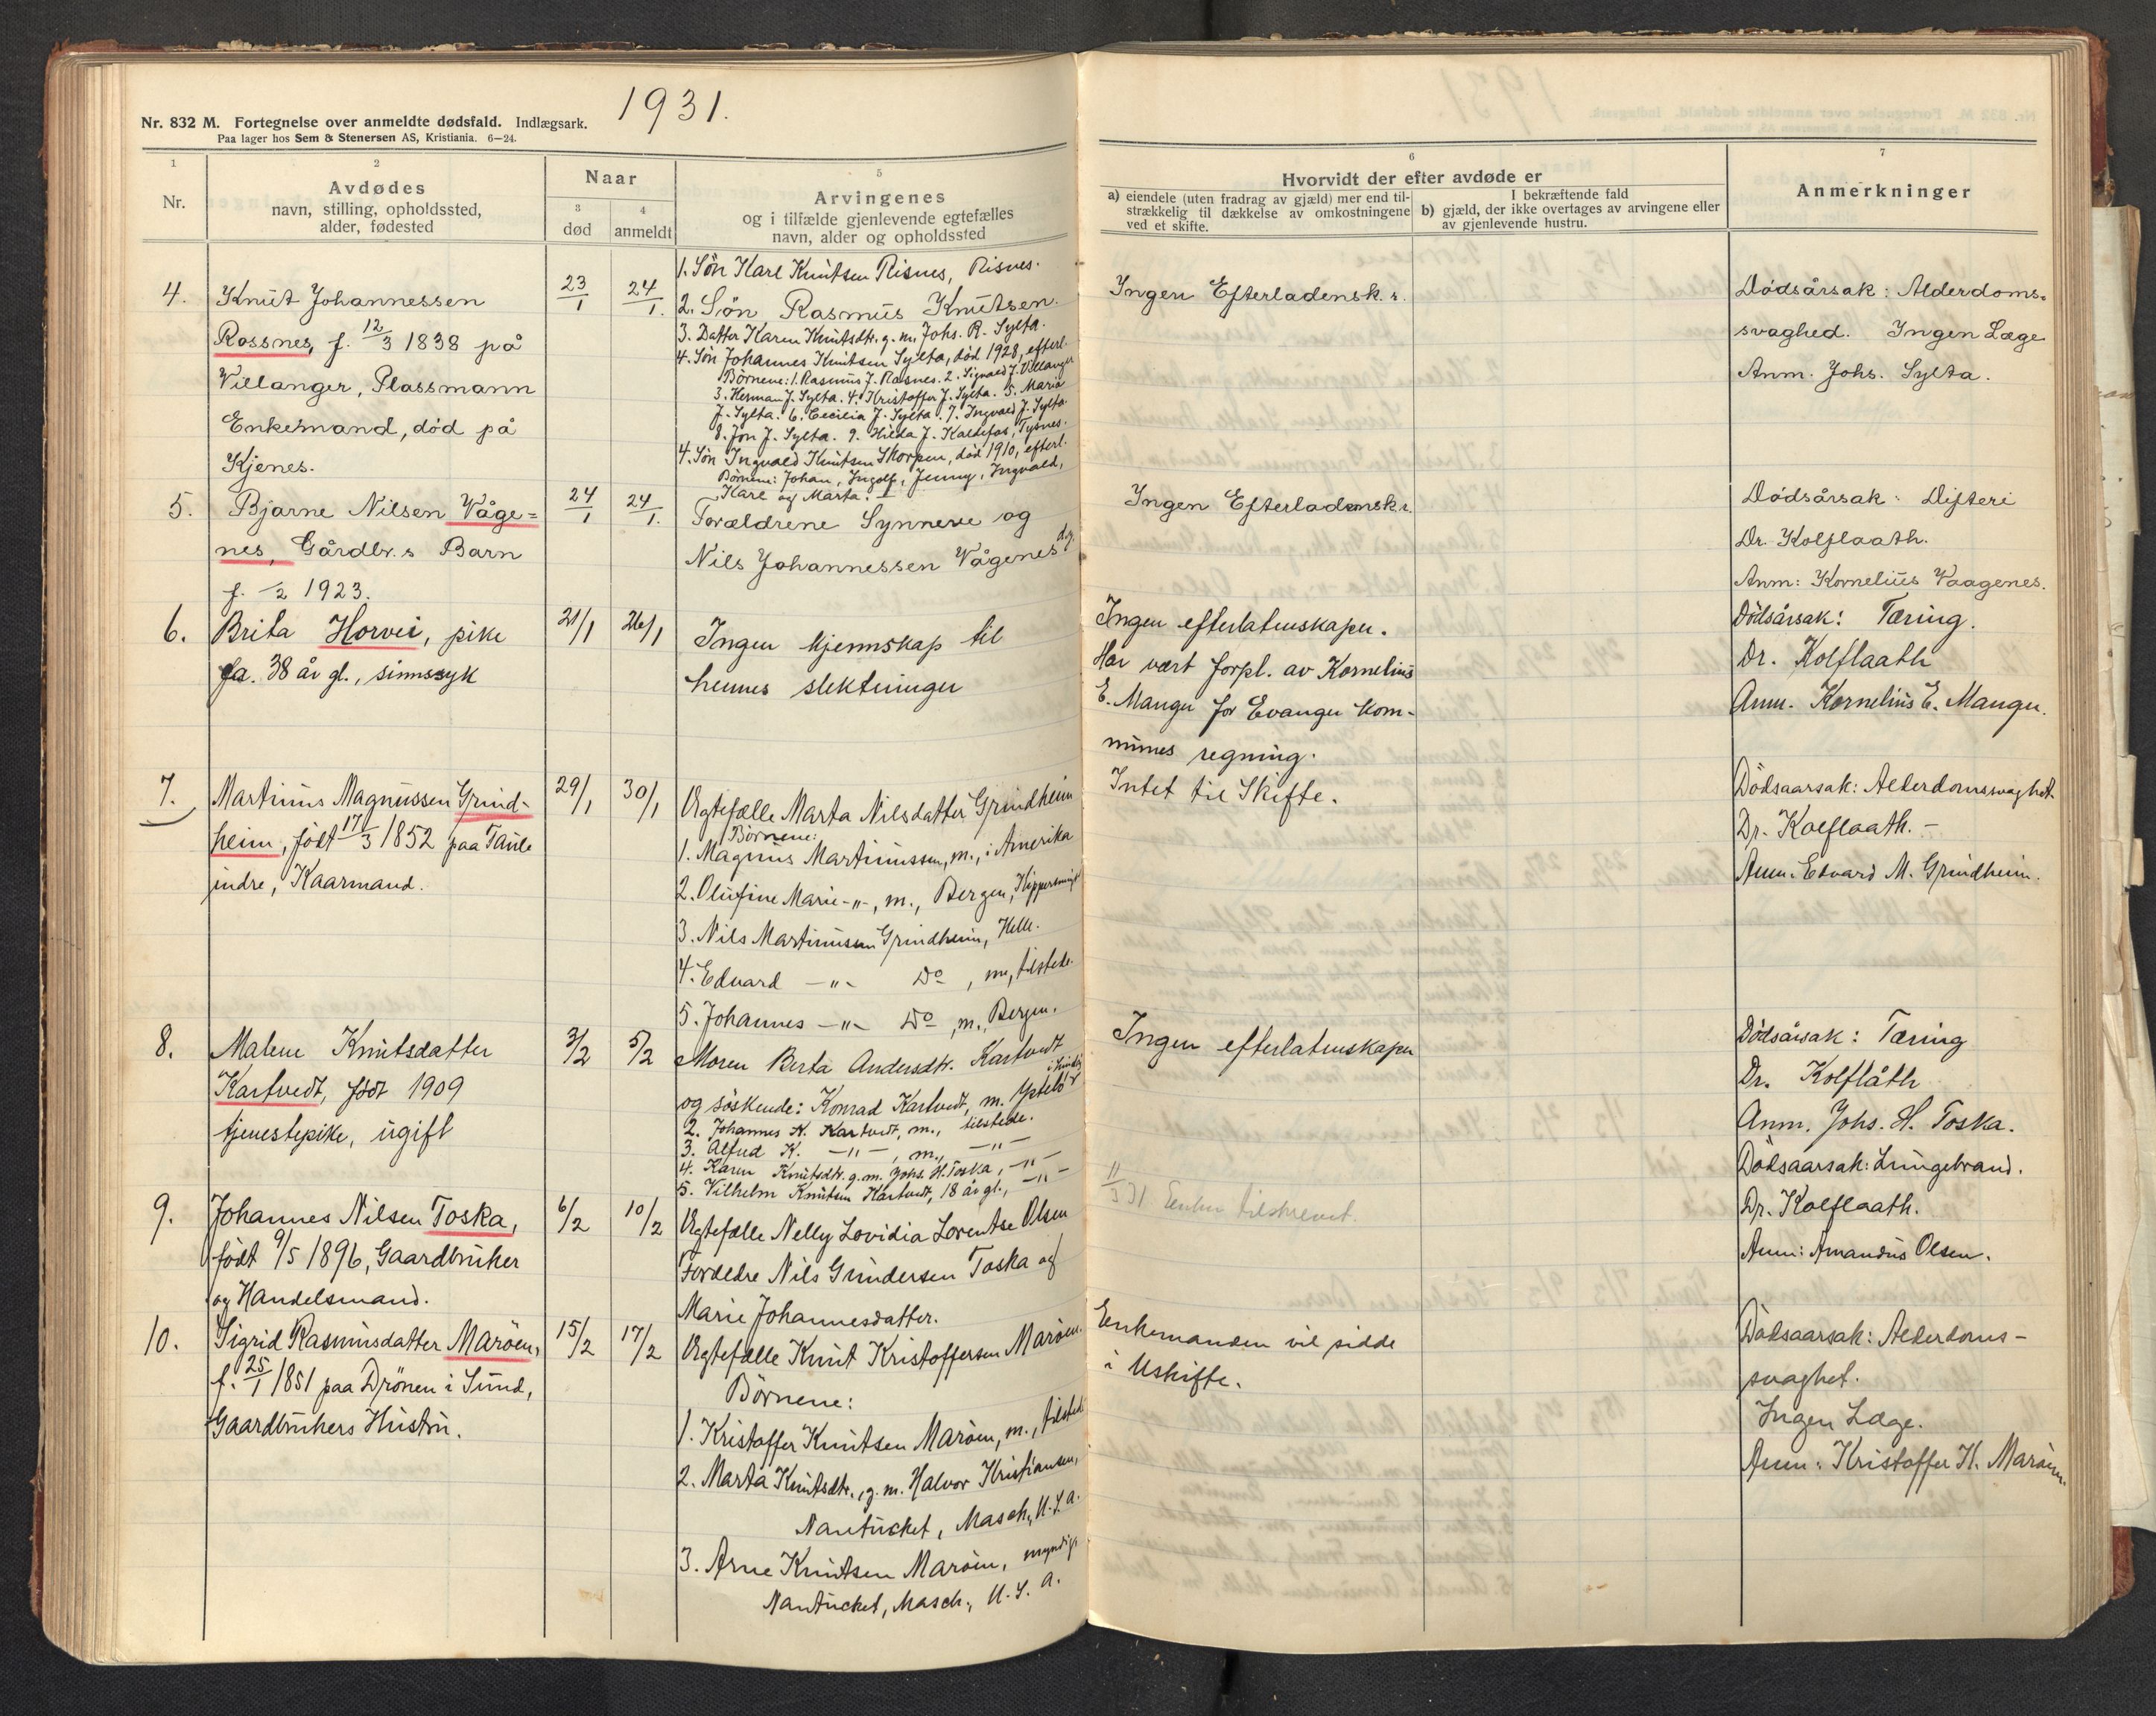 1931.
Nr. 832 M. Fortegnelse over anmeldte dødsfald. Indlægsark.
Paa lager hos Sem & Stenersen AS, Kristiania. 6—24.
1
Nr.
2
Avdødes
navn, stilling, opholdssted,
alder, fødested
Naar
3
død
4
anmeldt
5
Arvingenes
og i tilfælde gjenlevende egtefælles
navn, alder og opholdssted
6
Hvorvidt der efter avdøde er
a) eiendele (uten fradrag av gjæld) mer end til-
strækkelig til dækkelse av omkostningene
ved et skifte.
I bekræftende fald
b) gjæld, der ikke overtages av arvingene eller
av gjenlevende hustru.
7
Anmerkninger
4.
Knut Johannessen
Rossnes, f. 12/3 1838 på
Villanger, Plassmann
Enkemand, død på
Kjenes.
23/1
24/1.
1. Søn Karl Knutsen Risnes, Risnes.
2. Søn Rasmus Knutsen.
3. Datter Karen Knutsdtr. g. m. Johs. R. Sylta.
4. Søn Johannes Knutsen Sylta, død 1928, efterl.
Børnene: 1. Rasmus J. Rosnes. 2. Sigvald J. Villanger
3. Herman J. Sylta. 4. Kristoffer J. Sylta. 5. Maria
J. Sylta. 6. Cecilia J. Sylta. 7. Ingvald J. Sylta.
8. Jon J. Sylta. 9. Hilda J. Kaldefos, Tysnes.
4. Søn Ingvald Knutsen Skorpen, død 1910, efterl.
Børnene: Johan, Ingolf, Jenny, Ingvald,
Karl og Marta.
Ingen Efterladensk.r.
Dødsårsak: Alderdoms-
svaghed. Ingen Læge
Anm. Johs. Sylta.
5.
Bjarne Nilsen Våge=
nes, Gårdbr.s Barn
f. 1/2 1923.
24/1
24/1.
Forældrene Synneve og
Nils Johannessen Vågenes
Ingen Efterladensk.r.
Dødsårsak: Difteri
Dr. Kolflaath.
Anm: Kornelius Vaagenes.
6.
Brita Horvei, pike
ca. 38 år gl., sinnssyk
21/1
26/1
Ingen kjennskap til
hennes slektninger
Ingen efterlatenskaper.
Har vært forpl. av Kornelius
E. Manger for Evanger kom-
munes regning.
Dödsårsak: Tæring.
Dr. Kolflaath
Anm. Kornelius E. Manger.
7.
Martinus Magnussen Grind-
heim, født 17/3 1852 paa Taule
indre, Kaarmand.
29/1
30/1
Ægtefælle Marta Nilsdatter Grindheim
Børnene:
1. Magnus Martinussen, m., i Amerika
2. Olufine Marie -"-, m., Bergen,
3. Nils Martinussen Grindheim, Helle.
4. Edvard -"- Do, m., tilstede.
5. Johannes -"- Do, m., Bergen.
Intet til Skifte.
Dødsaarsak: Alderdomssvaghet.
Dr. Kolflaath. -
Anm. Edvard M. Grindheim.
8.
Malene Knutsdatter
Kartvedt, født 1909
tjenestepike, ugift
3/2
5/2
Moren Berta Andersdtr. Kartvedt
og søskende: Konrad Kartvedt, m.
2. Johannes K. Kartvedt, m., tilstede.
3. Alfred K. -"-, m., -"-
4. Karen Knutsdtr. g.m. Johs. H. Toska, -"-
5. Vilhelm Knutsen Kartvedt, 18 år gl., -"-
Ingen efterlatenskaper
Dödsårsak: Tæring
Dr. Kolflåth
Anm. Johs. H. Toska.
9.
Johannes Nilsen Toska,
født 9/5 1896, Gaardbruker
og Handelsmand.
6/2
10/2
Ægtefælle Nelly Lovidia Lorentse Olsen
Foreldre Nils Gundersen Toska og
Marie Johannesdatter.
11/3 31 Enken tilskrevet.
Dødsaarsak: Lungebrand.
Dr. Kolflaath.
Anm: Amandus Olsen.
10.
Sigrid Rasmusdatter Marøen,
f. 25/1 1851 paa Drönen i Sund,
Gaardbrukers Hustru.
15/2
17/2
Ægtefælle Knut Kristoffersen Marøen.
Børnene:
1. Kristoffer Knutsen Marøen, m., tilstede
2. Marta Knutsdtr., g. m. Halvor Kristiansen,
Nantucket, Masch., U.S.A.
3. Arne Knutsen Marøen, myndig,
Nantucket, Masch., U.S.A.
Enkemanden vil sidde
i Uskifte.
Dødsaarsak: Alderdoms-
svaghet.
Ingen Læge.
Anm: Kristoffer K. Marøen.